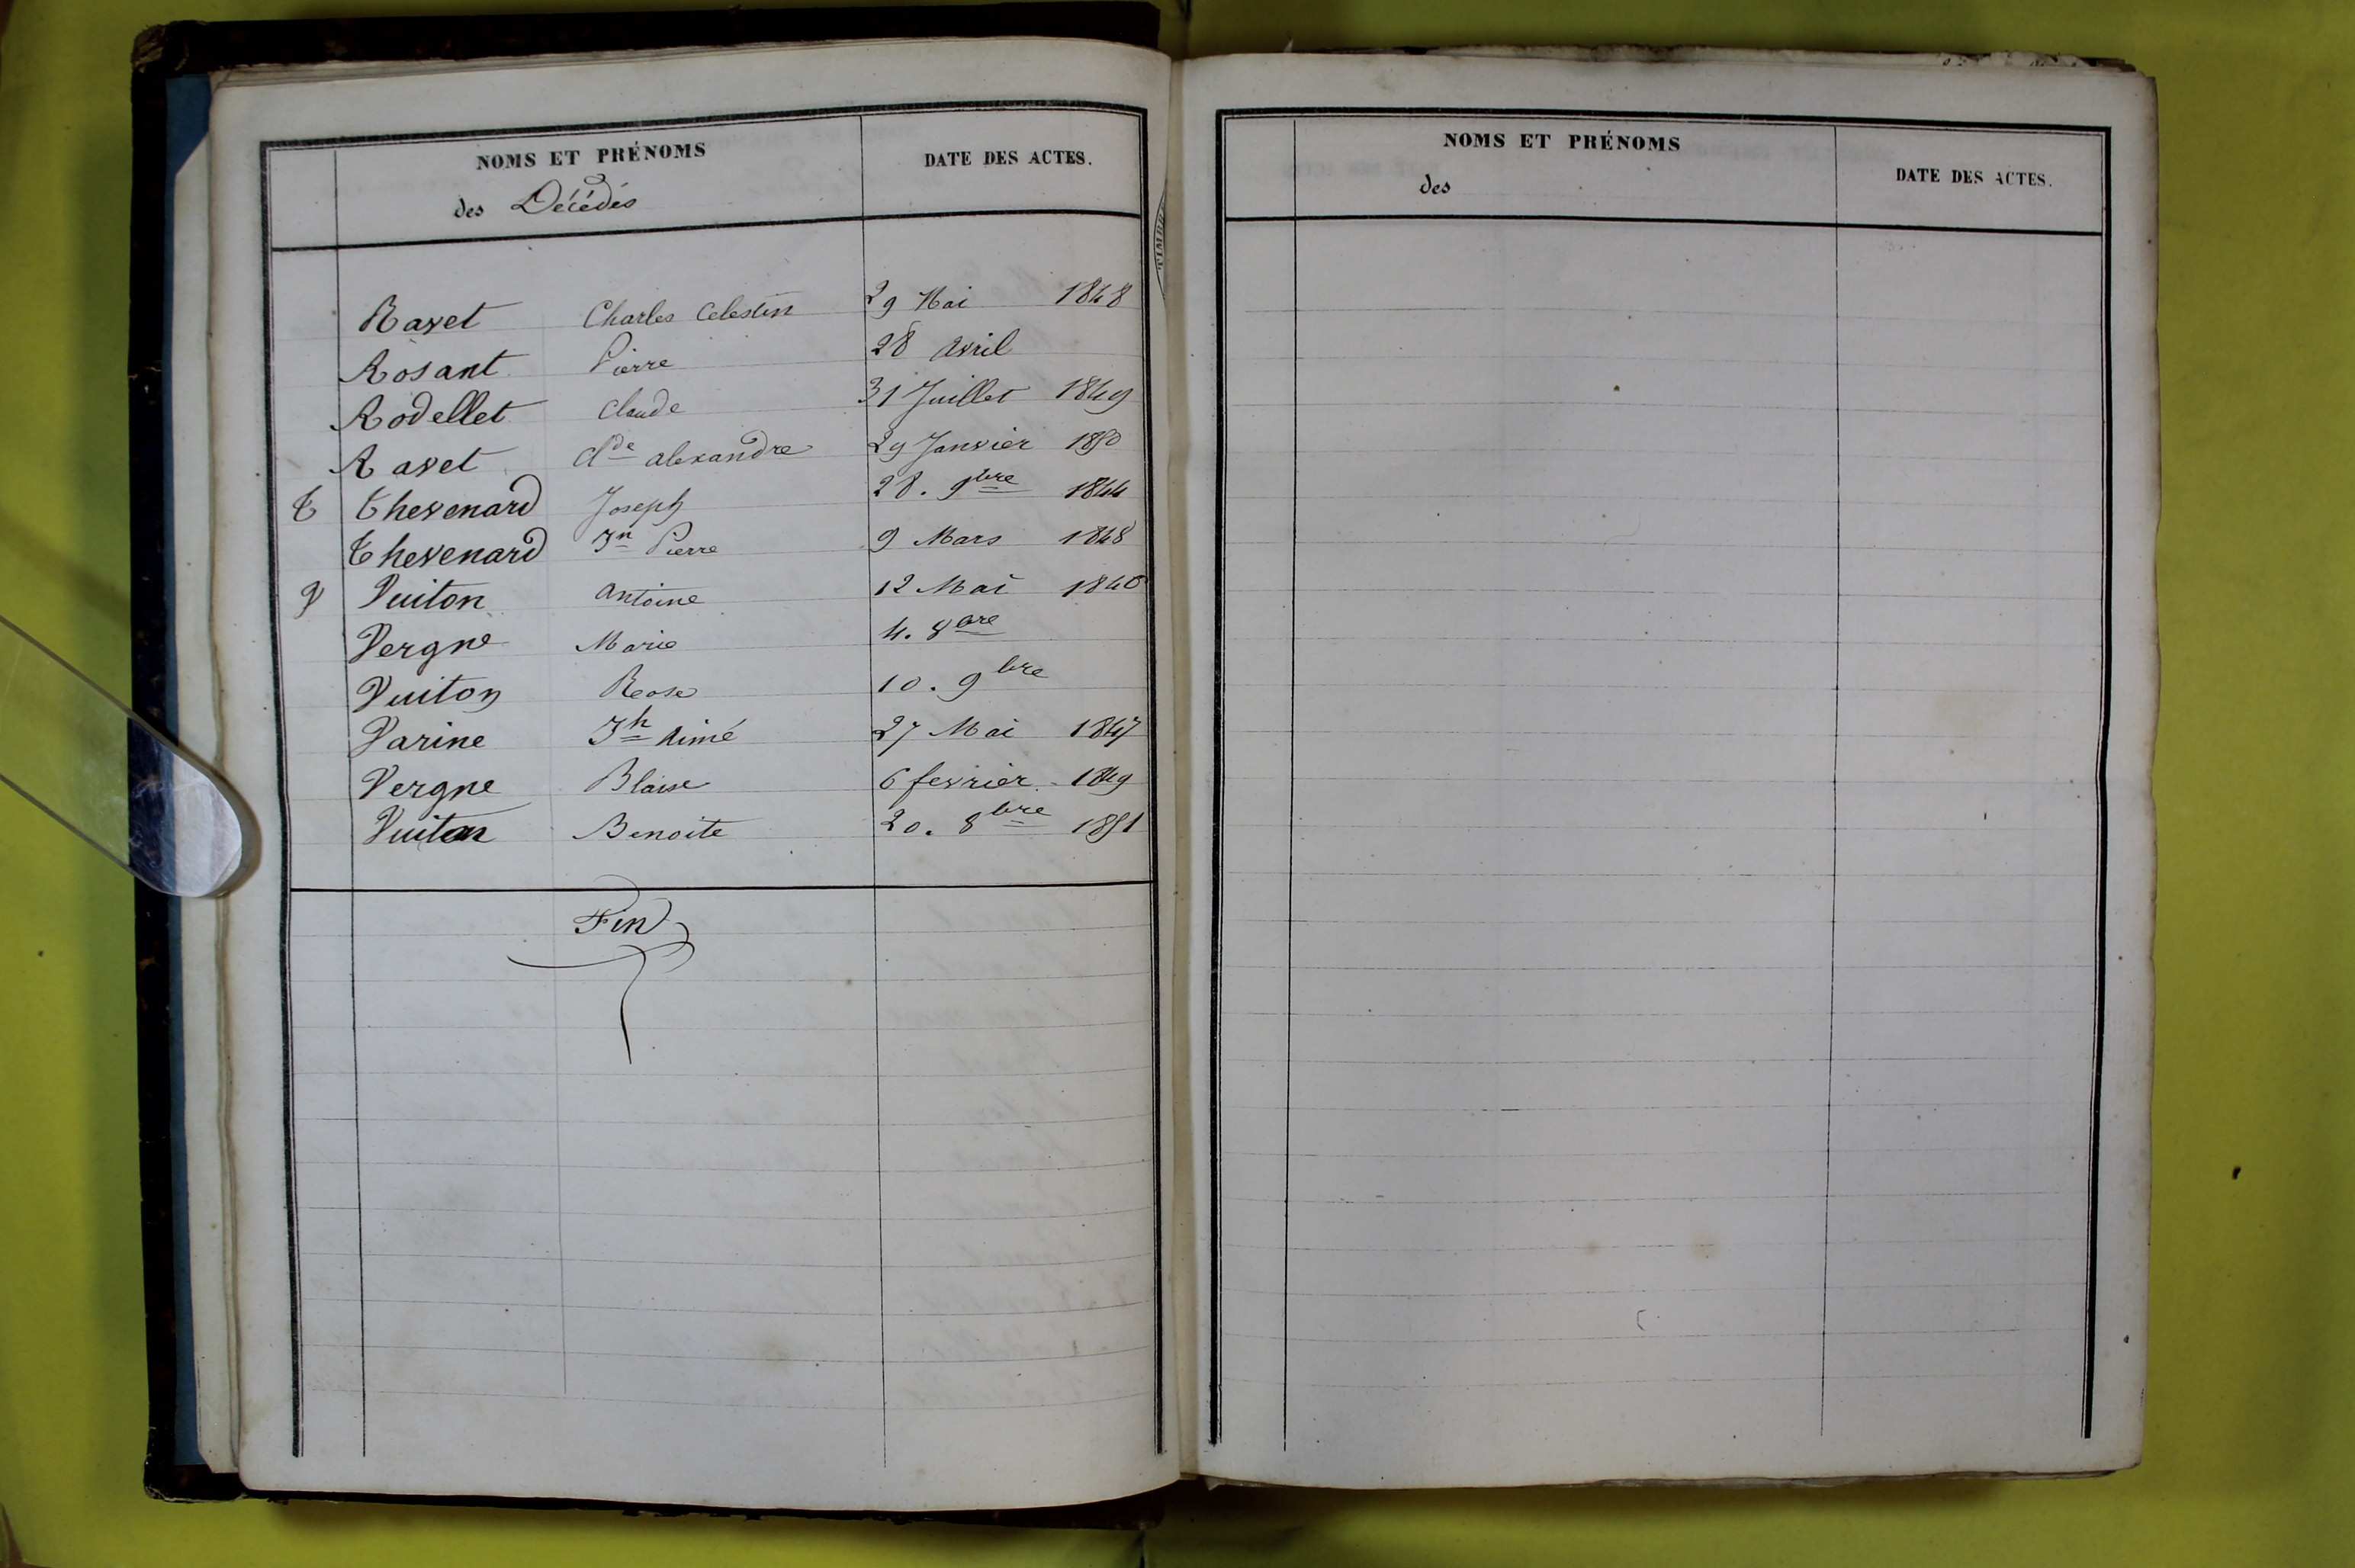 NOMS ET PRÉNOMS DATE DES ACTES.
des Décédés
Ravet Charles Celestin 29 Mai 1848
Rosant Pierre 28 avril
Rodellet Claude 31 Juillet 1849
Ravet Cl^de alexandre 29 Janvier 1850
T Thevenard Joseph 28. 9^bre 1844
Thevenard J^n Pierre 9 Mars 1848
V Vuiton antoine 12 Mai 1846
Vergne Marie 4. 8^bre
Vuiton Rose 10. 9^bre
Varine J^h Aimé 27 Mai 1847
Vergne Blaise 6 fevrier 1849
Vuiton Benoite 20. 8^bre 1851
Fin
TIMBRE
NOMS ET PRÉNOMS DATE DES ACTES.
des